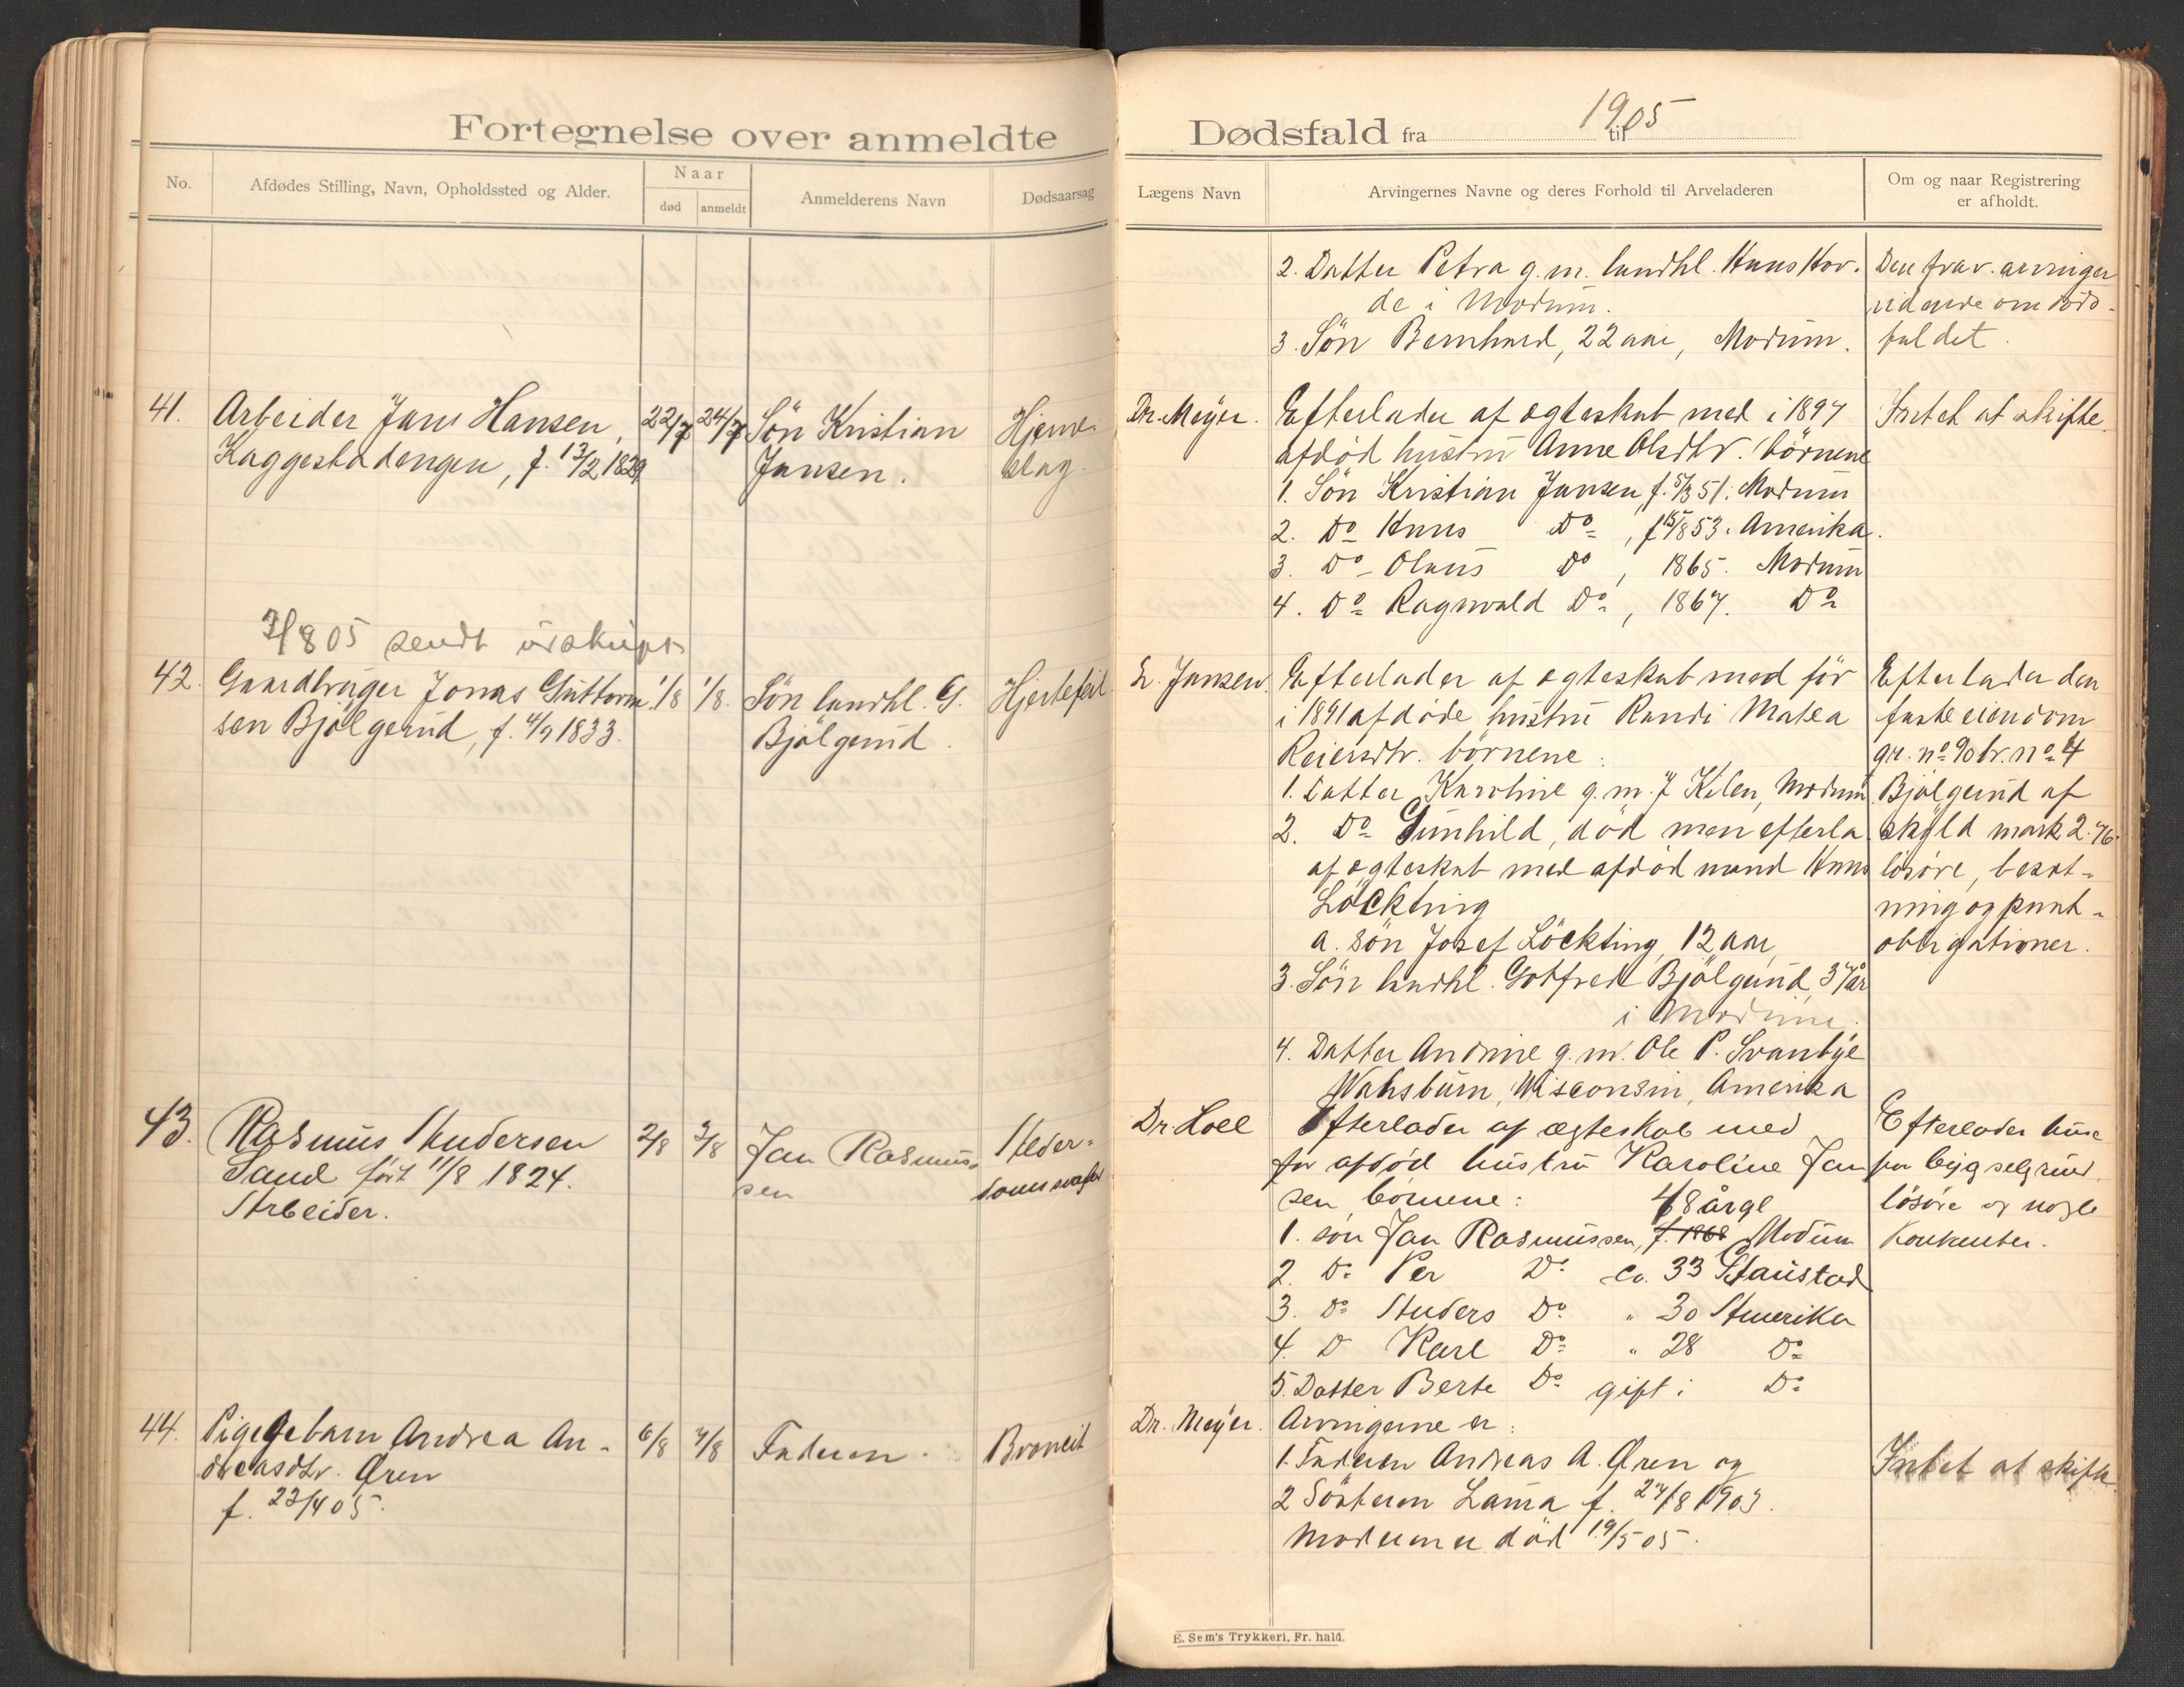 Fortegnelse over anmeldte
No.
Afdødes Stilling, Navn, Opholdssted og Alder.
Naar
død
anmeldt
Anmelderens Navn
Dødsaarsag
41.
Arbeider Jans Hansen,
Kaggestadengen, f. 13/2 1829
22/7
24/7
Søn Kristian
Jansen.
Hjerne-
slag.
3/8 05 sendt udskrift
42.
Gaardbruger Jonas Guttorm-
sen Bjølgerud, f. 4/9 1833.
1/8
1/8.
Søn landhl. G.
Bjølgerud.
Hjertefeil
43.
Rasmus Andersen
Sand født 11/8 1824.
Arbeider.
2/8
3/8
Jan Rasmus-
sen
Alder-
domssvaghed
44.
Pigebarn Andrea An-
dreasdtr. Øren
f. 23/4 05.
6/8
7/8
Faderen.
Bronkit
Dødsfald fra 1905 til
Lægens Navn
Arvingernes Navne og deres Forhold til Arveladeren
Om og naar Registrering
er afholdt.
2. Datter Petra g.m. landhl. Hans Hov-
de i Modum.
3. Søn Bernhard, 22 aar, Modum.
Den frav. arvinger
vidende om døds-
faldet.
Dr. Meyer.
Efterlader af ægteskab med i 1897
afdød hustru Anne Olsdtr. børnene
1. Søn Kristian Jansen f. 5/3 51. Modum
2. Do Hans Do, f 15/8 53. Amerika.
3. Do Olaus Do, 1865. Modum
4. Do Ragnvald Do, 1867. Do
Intet at skifte.
E. Jansen.
Efterlader af ægteskab med før
i 1891 afdøde hustru Randi Matea
Reiersdtr. børnene:
1. Datter Karoline g.m. J Kilen, Modum
2. Do Gunhild, død men efterla.
af ægteskab med afdød mand Hans
Løckting
a. søn Josef Løckting, 12 aar,
3. Søn landhl. Gotfred Bjølgerud, 37 år
i Modum.
4. Datter Andrine g.m. Ole P. Svanbye
Wahsburn, Wisconsin, Amerika
Efterlader den
faste eiendom
gr. no 90 br. no 4
Bjølgerud af
skyld mark 2.76.
løsøre, besæt-
ning og pant-
obligationer.
Dr. Loll
Efterlader af ægteskab med
før afdød hustru Karoline Jan
sen børnene:
48 årgl
1. søn Jan Rasmussen, f. 1868 Modum
2. Do Per Do ca. 33
3. Do Anders Do " 30 Amerika
4. D Karl Do " 28 Do
5. Datter Berte Do gift i Do
Efterlader huse
paa bygselgrund,
løsøre og nogle
Kontanter.
Dr. Meyer.
Arvingerne er:
1. Faderen Andreas A. Øren og
2 Søsteren Laura f. 27/8 1903.
Moderen er død 19/5 05.
Intet at skifte.
E. Sem's Trykkeri, Fr. hald.